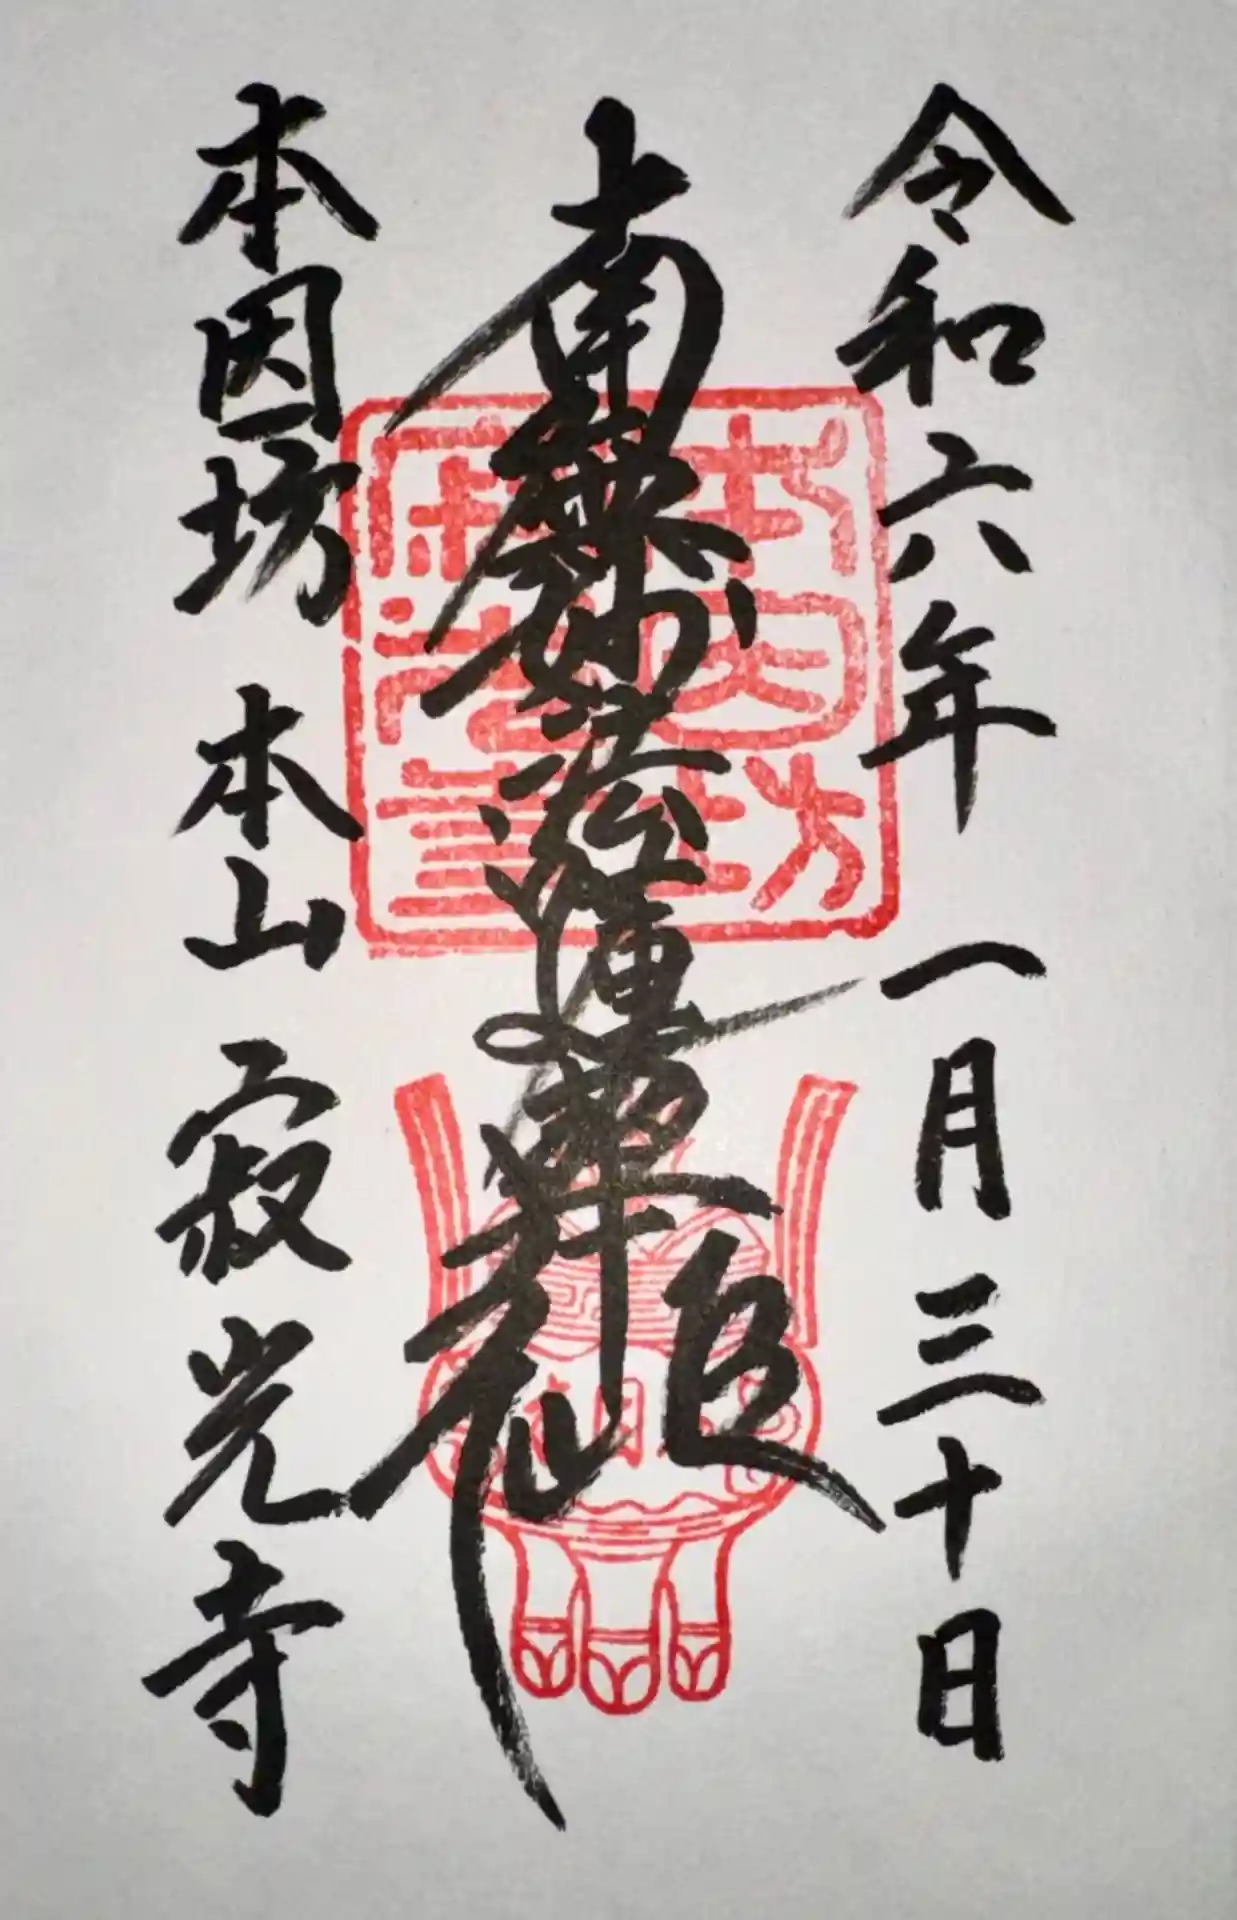 令和六年一月三十日
南無妙法蓮華経
本因坊 本山 寂光寺
本因坊